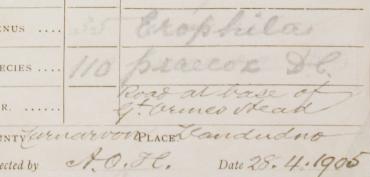 ENUS .... 35 Erophila
ECIES .... 110 praecox DC.
Road at base of
R. ...... Gt. Ormes Head
NTY Carnarvon PLACE Llandudno
ected by A.O.H. Date 28.4.1905